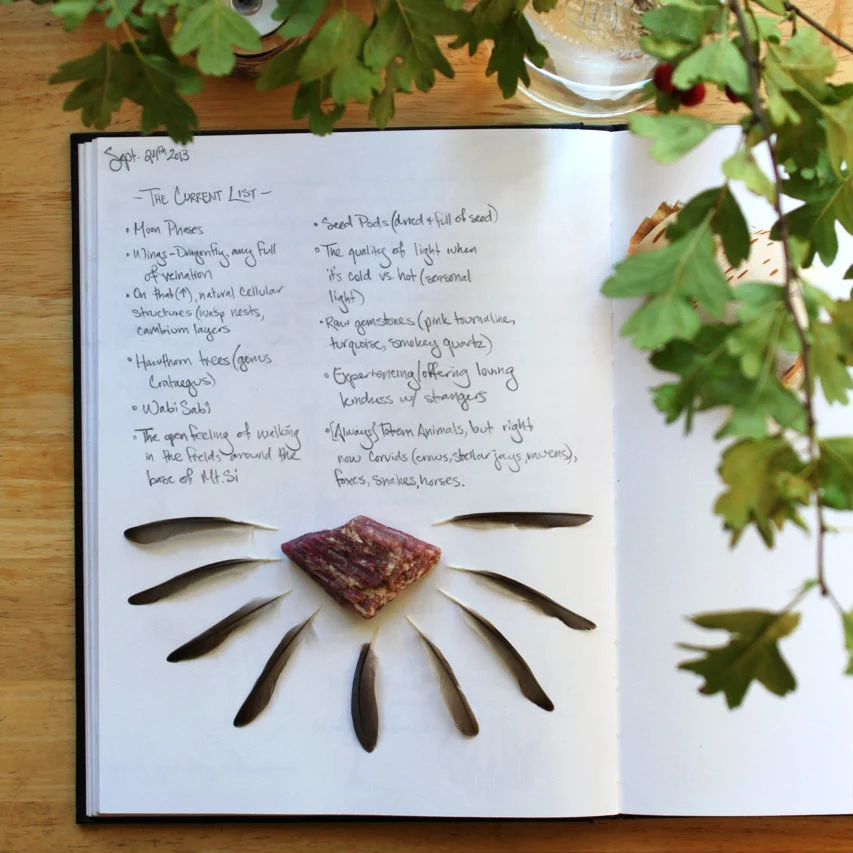 Sept. 24th 2013
- The Current List -
• Moon Phases
• Wings - Dragonfly, any full
of veination
• On that (↑), natural cellular
structures (wasp nests,
cambium layers
• Hawthorn trees (genus
Crataegus)
• Wabi Sabi
• The open feeling of walking
in the fields around the
base of Mt. Si
• Seed Pods (dried + full of seed)
• The quality of light when
it's cold vs. hot (seasonal
light)
• Raw gemstones (pink tourmaline,
turquoise, smokey quartz)
• Experiencing/offering loving
kindness w/ strangers
• [Always] Totem Animals, but right
now Corvids (crows, stellar jays, ravens),
foxes, snakes, horses.